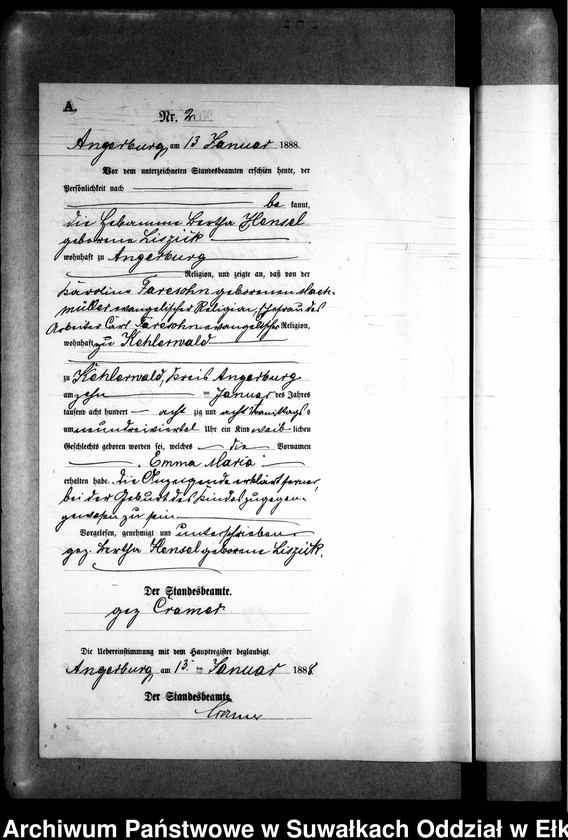 A.
Nr. 2
Angerburg, am 13 Januar 1888.
Vor dem unterzeichneten Standesbeamten erschien heute, der
Persönlichkeit nach
be kannt,
die Hebamme Bertha Hensel
geborene Liszick
wohnhaft zu Angerburg
Religion, und zeigte an, daß von der
Karoline Taresohn geborenen
müller evangelischer Religion, Ehefrau des
Arbeiter Carl Taresohn evangelischer Religion,
wohnhaft zu Kehlerwald
zu Kehlerwald, Kreis Angerburg
am zehn Januar des Jahres
tausend acht hundert acht zig und acht Vormittags
um neundreiviertel Uhr ein Kind weib lichen
Geschlechts geboren worden sei, welches die Vornamen
Emma Maria
erhalten habe. Die Anzeigende erklärt ferner,
bei der Geburt des Kindes zugegen
gewesen zu sein
Vorgelesen, genehmigt und unterschrieben
gez. Bertha Hensel geborene Liszick.
Der Standesbeamte.
gez Cramer
Die Uebereinstimmung mit dem Hauptregister beglaubigt.
Angerburg am 13. Januar 1888
Der Standesbeamte.
Cramer
Archiwum Państwowe w Suwałkach Oddział w Ełk